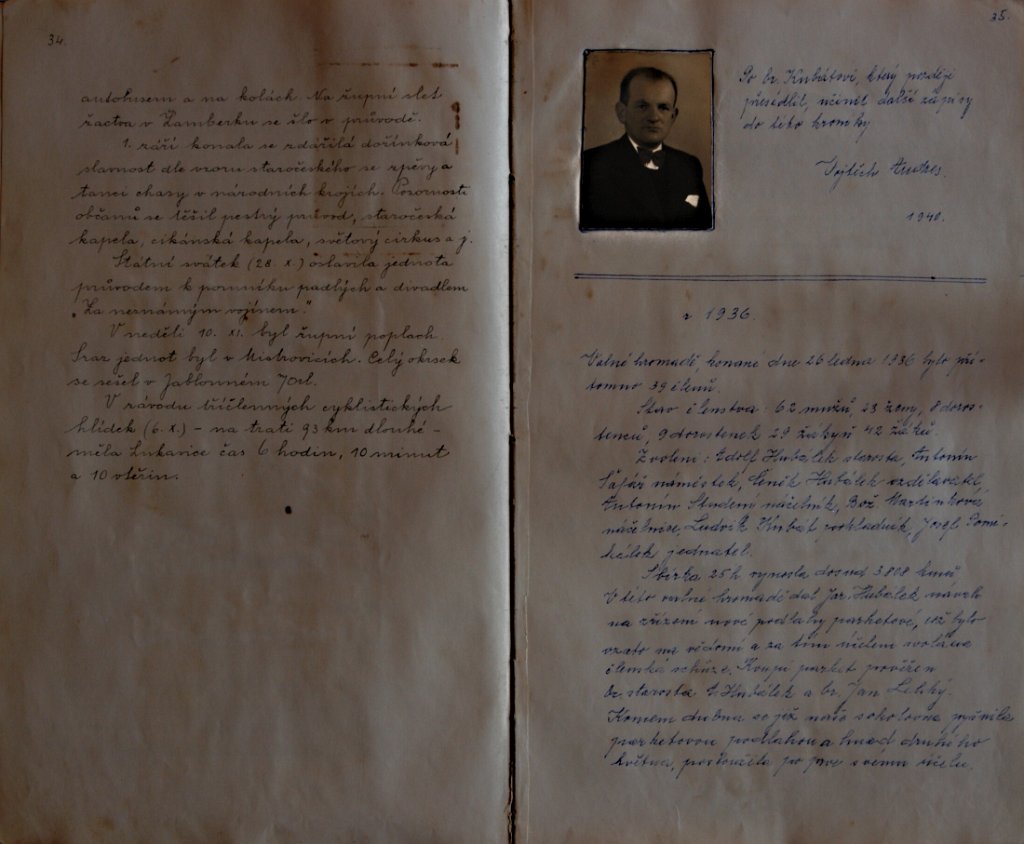 34.
autobusem a na kolách. Na župní slet
žactva v Žamberku se šlo v průvodě.
1. září konala se zdařilá dožínková
slavnost dle vzoru staročeského se zpěvy a
tanci chasy v národních krojích. Pozornosti
občanů se těšil pestrý průvod, staročeská
kapela, cikánská kapela, světový cirkus a j.
Státní svátek (28. X.) oslavila jednota
průvodem k pomníku padlých a divadlem
„Za neznámým vojínem."
V neděli 10. XI. byl župní poplach.
Sraz jednot byl v Mistrovicích. Celý okrsek
se sešel v Jablonném n/Orl.
V závodu tříčlenných cyklistických
hlídek (6. X.) – na trati 93 km dlouhé –
měla Lukavice čas 6 hodin, 10 minut
a 10 vteřin.
35.
Po br. Kubátovi, který později
přesídlil, učinil další zápisy
do této kroniky
Vojtěch
1940.
r 1936.
Valné hromadě, konané dne 26 ledna 1936 bylo pří-
tomno 39 členů.
Stav členstva: 62 mužů, 23 žen, 8 doros-
tenců, 9 dorostenek 29 žákyň 42 žáků.
Zvoleni: Adolf Hubálek starosta, Antonín
náměstek, Čeněk Hubálek vzdělavatel,
Antonín Studený náčelník, Bož. Martinková
náčelnice, Ludvík Kubát pokladník, Josef Pomi-
kálek jednatel.
Sbírka 25 h. vynesla dosud 3.808 korun
V této valné hromadě dal Jar. Hubálek návrh
na zřízení nové podlahy parketové, což bylo
vzato na vědomí a za tím účelem svolána
členská schůze. Koupí parket pověřen
br. starosta A. Hubálek a br. Jan
Koncem dubna se již naše sokolovna pyšnila
parketovou podlahou a hned druhého
května, posloužila po prve svému účelu.